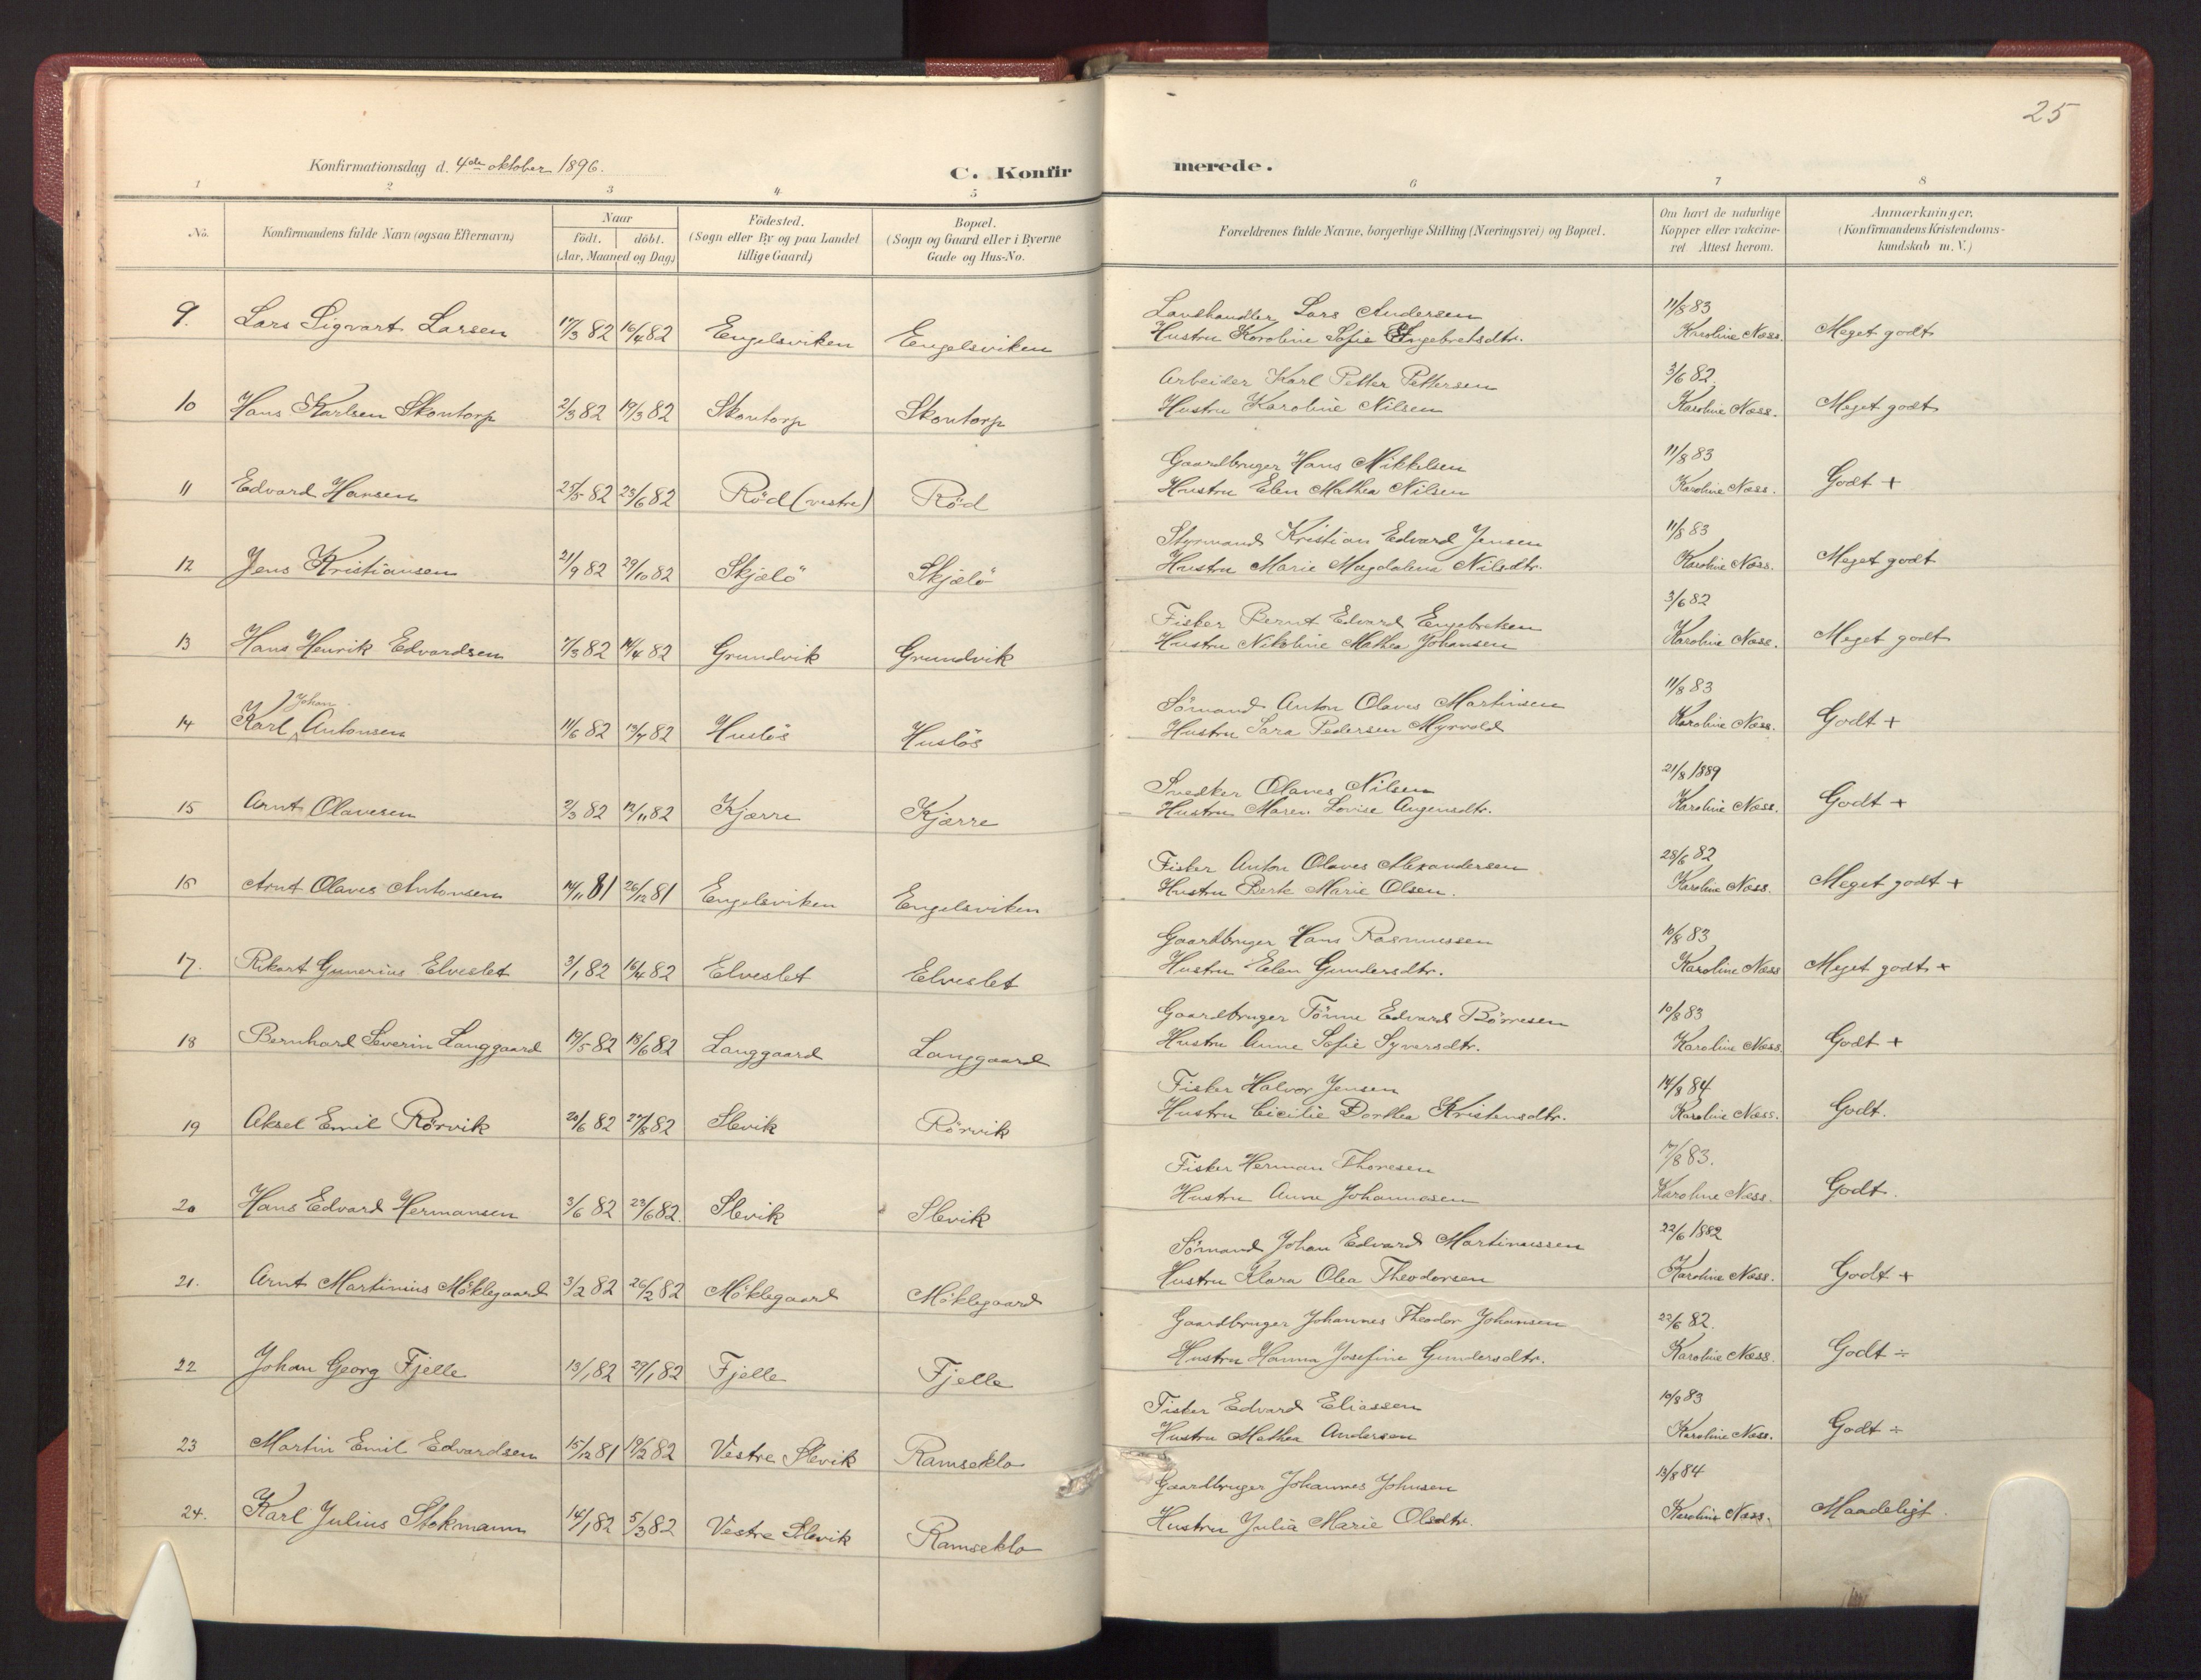 25
Konfirmationsdag d. 4de oktober 1896.
C. Konfirmerede.
1 2 3 4 5 6 7 8
No.
Konfirmandens fulde Navn (ogsaa Efternavn)
Naar
födt. döbt.
(Aar, Maaned og Dag)
Födested.
(Sogn eller By og paa Landet
tillige Gaard)
Bopæl.
(Sogn og Gaard eller i Byerne
Gade og Hus-No.
Forældrenes fulde Navne, borgerlige Stilling (Næringsvei) og Bopæl.
Om havt de naturlige
Kopper eller vakcine-
ret. Attest herom.
Anmærkninger.
(Konfirmandens Kristendoms-
kundskab m. V.)
Lars Andersen 11/8 83
9. Lars Sigvart Larsen 17/3 82 16/4 82 Engelsviken Engelsviken Hustru Karoline Sofie Engebretsdtr. Karoline Næss. Meget godt
Arbeider Karl Petter Pettersen 3/6 82.
10 Hans Karlsen Skontorp 2/3 82 19/3 82 Skontorp Skontorp Hustru Karoline Nilsen Karoline Næss. Meget godt
Gaardbruger Hans Mikkelsen 11/8 83
11 Edvard Hansen 25/5 82 23/6 82 Röd (vestre) Röd Hustru Elen Mathea Nilsen Karoline Næss. Godt +
Styrmand Kristian Edvard Jensen 11/8 83
12 Jens Kristiansen 21/9 82 29/10 82 Skjælö Skjælö Hustru Marie Magdalena Nilsdtr. Karoline Næss. Meget godt
Fisker Bernt Edvard Engebretsen 3/6 82
13 Hans Henrik Edvardsen 7/3 82 14/4 82 Grundvik Grundvik Hustru Nikoline Mathea Johansen Karoline Næss. Meget godt
Sömand Anton Olaves Martinsen 11/8 83
14 Karl Johan Antonsen 11/6 82 82 Huslös Huslös Hustru Sara Pedersen Myrvold Karoline Næss. Godt +
Snedker Olaves Nilsen 21/8 1889
15 Arnt Olavesen 2/3 82 12/11 82 Kjærre Kjærre Hustru Maren Lovise Karoline Næss. Godt +
Fisker Anton Olaves Alexandersen 28/6 82
16 Arnt Olaves Antonsen 14/11 81 26/12 81 Engelsviken Engelsviken Hustru Marie Olsen. Karoline Næss. Meget godt +
Gaardbruger Hans Rasmussen 10/8 83
17. Rikart Gunerius Elveslet 3/1 82 16/4 82 Elveslet Elveslet Hustru Elen Gundersdtr. Karoline Næss Meget godt +
Gaardbruger Tönne Edvard Börresen 10/8 83
18 Bernhard Severin Langgaard 19/5 82 18/6 82 Langgaard Langgaard Hustru Anne Sofie Syversdtr. Karoline Næss. Godt +
Fisker Halvor Jensen 14/8 84
19 Aksel Emil Rörvik 20/6 82 27/8 82 Slevik Rörvik Hustru Cicilie Dorthea Kristensdtr. Karoline Næss. Godt.
Fisker Herman Thoresen 17/8 83.
20 Hans Edvard Hermansen 3/6 82 23/6 82. Slevik Slevik Hustru Anne Johannesen Karoline Næss. Godt.
Sömand Johan Edvard Martinussen 22/6 1882
21. Arnt Martinius Möklegaard 3/2 82 26/2 82 Möklegaard Möklegaard Hustru Klara Olea Theodorsen Karoline Næss. Godt +
Gaardbruger Johannes Theodor Johansen 22/6 82.
22 Johan Georg Fjelle 13/1 82 29/1 82 Fjelle Fjelle Hustru Hanna Josefine Gundersdtr. Karoline Næss. Godt ÷
Fisker Edvard Eliassen 10/8 83
23 Martin Emil Edvardsen 15/12 81 19/2 82 Vestre Slevik Ramseklo Hustru Mathea Andersen Karoline Næss. Godt ÷
Gaardbruger Johannes Johnsen 13/8 84
24. Karl Julius Stokmann 14/1 82 5/3 82 Vestre Slevik Ramseklo Hustru Julia Marie Olsdtr. Karoline Næss. Maadeligt.